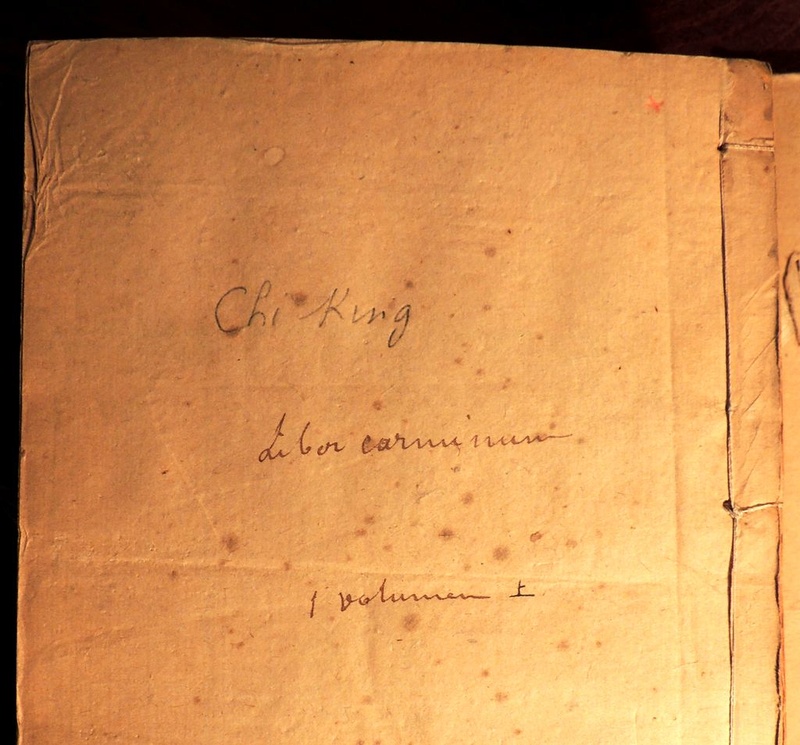 Chi King
Liber carminum
1 volumen 上